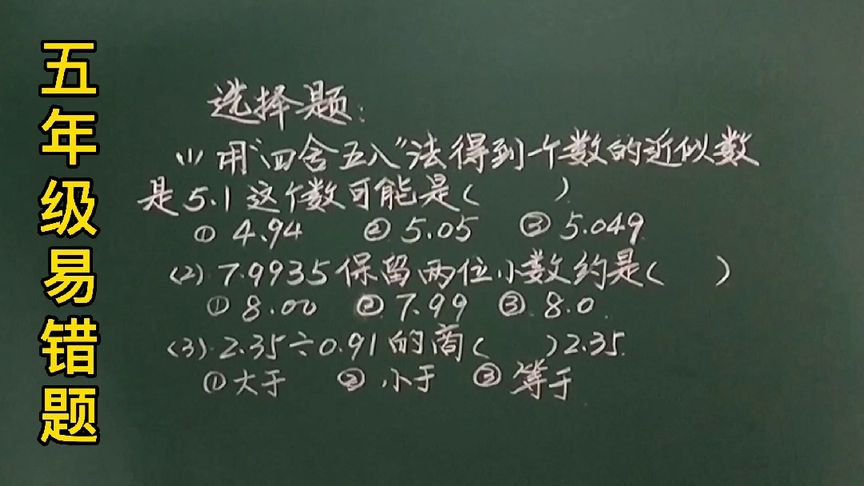 五年级易错题
选择题:
(1) 用“四舍五入”法得到一个数的近似数
是5.1这个数可能是( )
① 4.94 ② 5.05 ③ 5.049
(2) 7.9935保留两位小数约是( )
① 8.00 ② 7.99 ③ 8.0
(3). 2.35÷0.91的商( )2.35
① 大于 ② 小于 ③ 等于